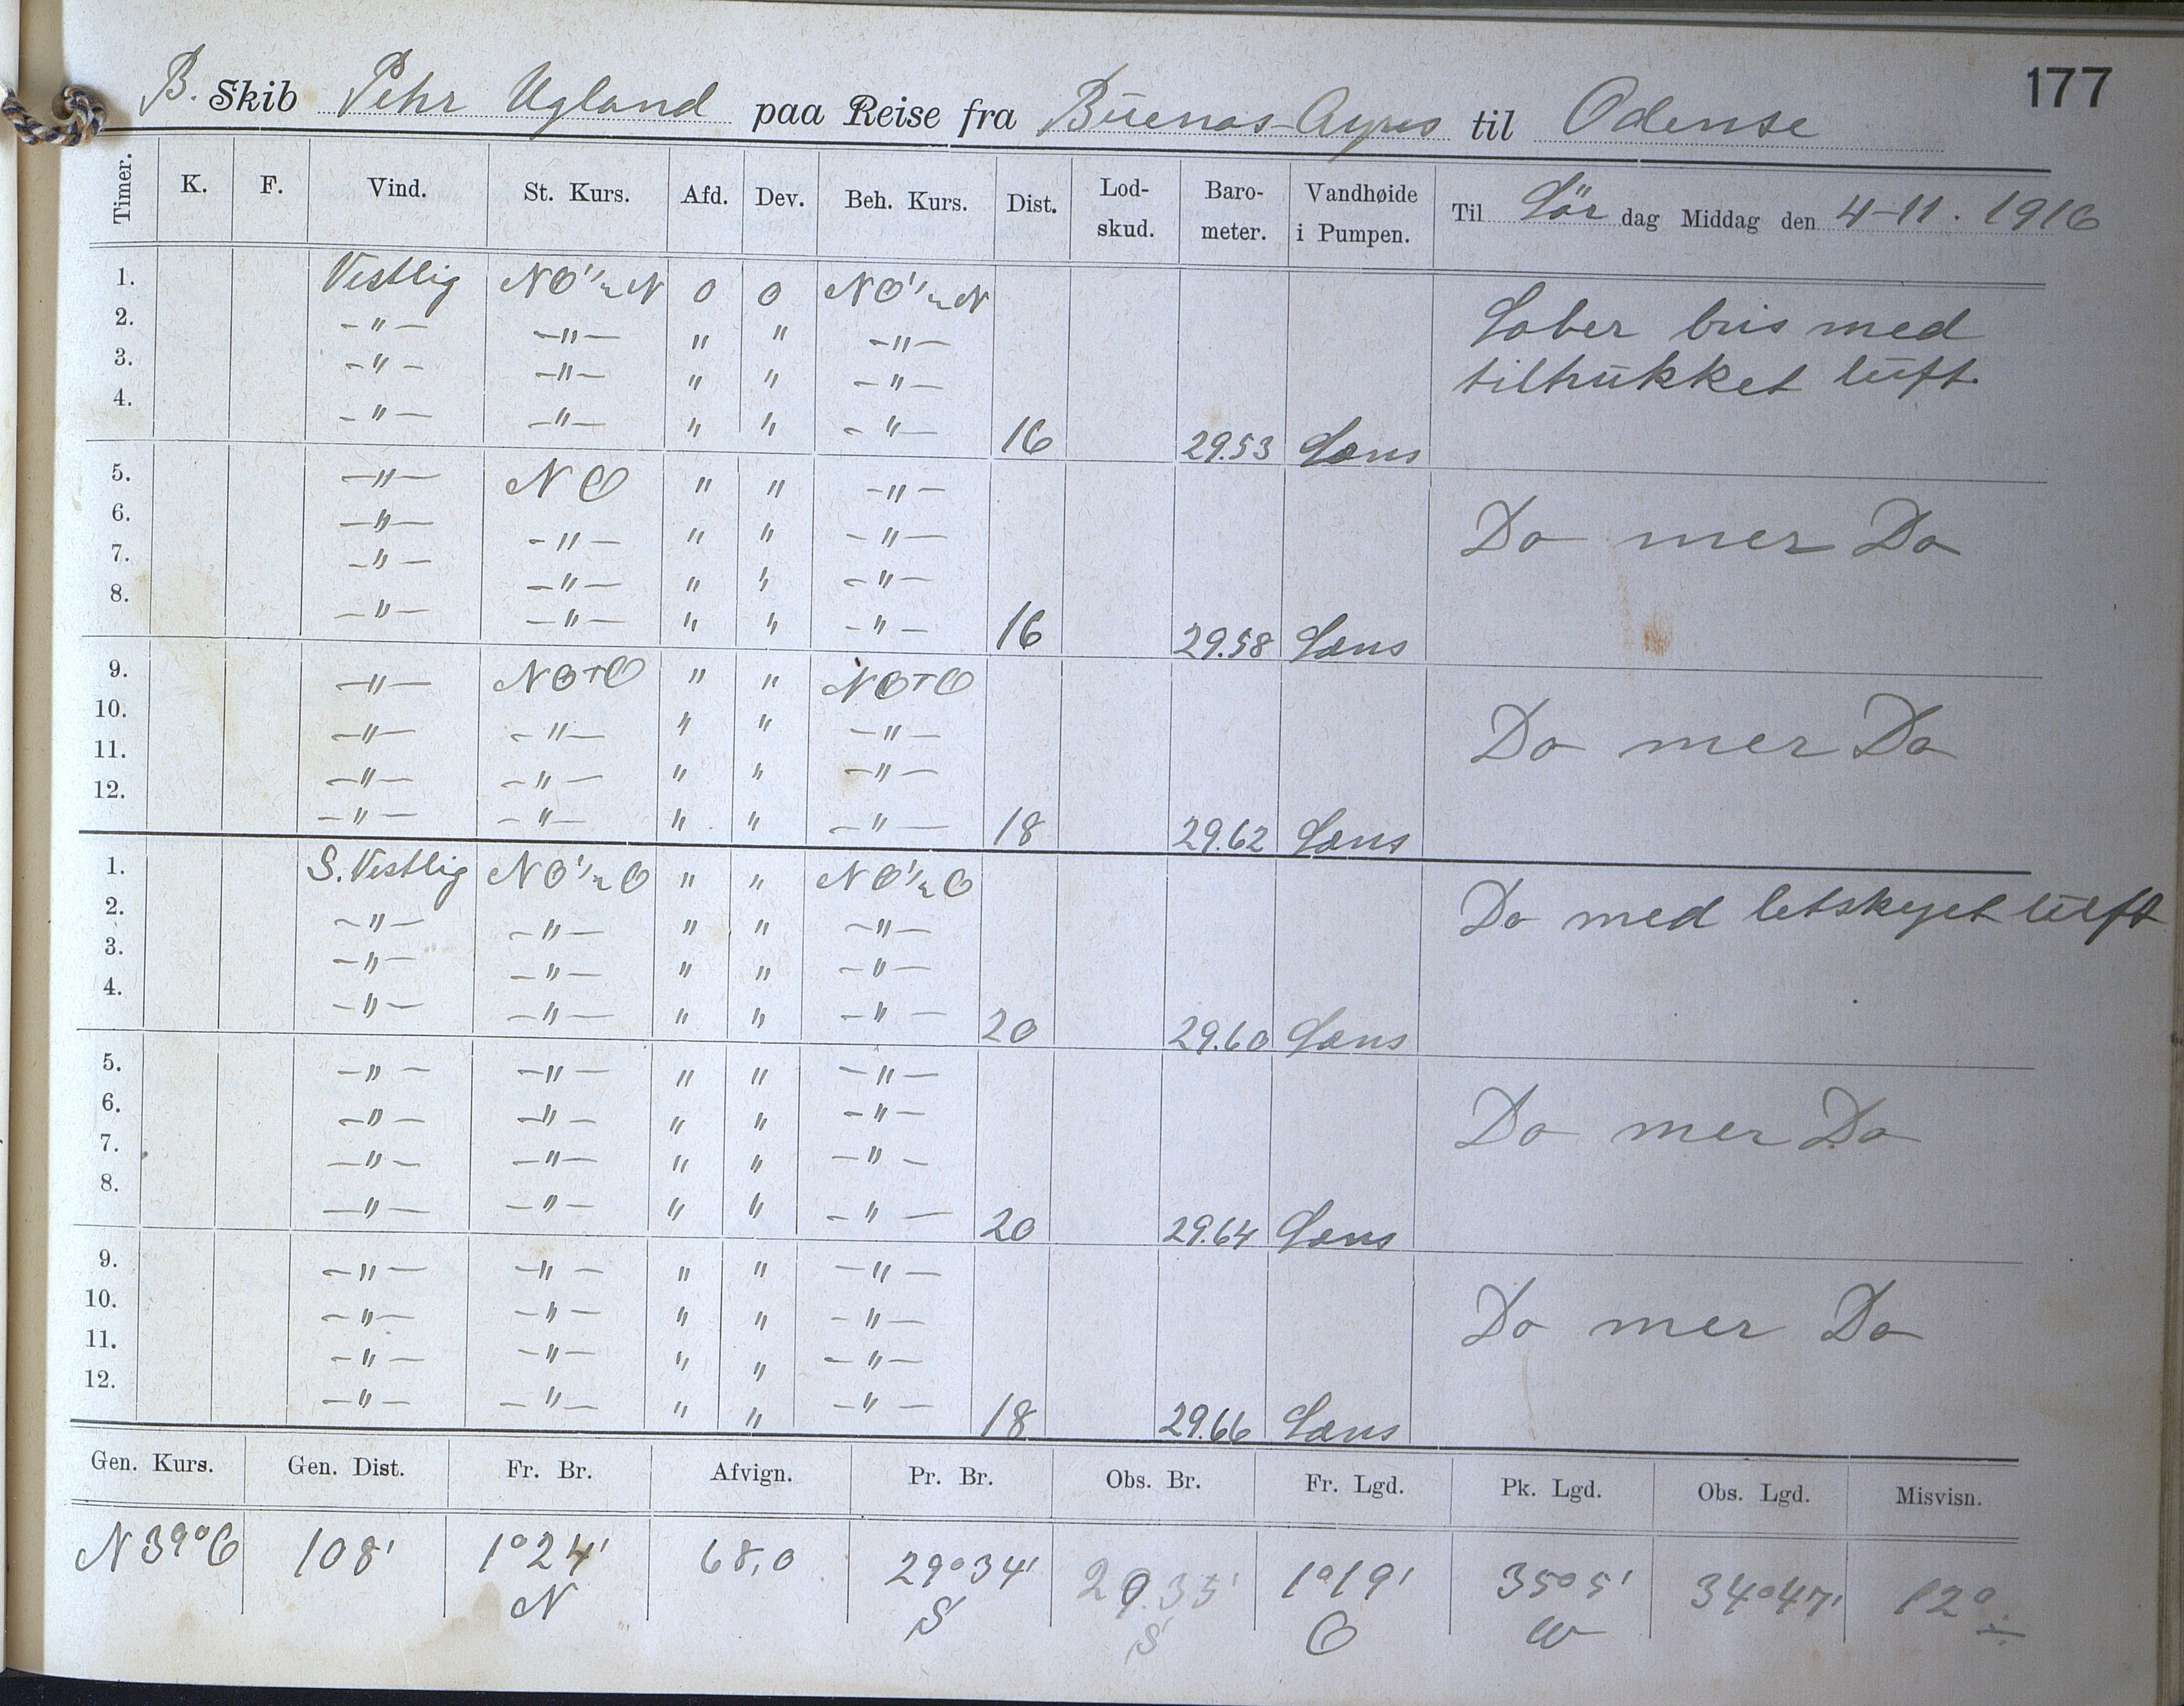 177
B. Skib Pehr Ugland paa Reise fra Buenos-Ayres til Odense
Timer. K. F. Vind. St. Kurs. Afd. Dev. Beh. Kurs. Dist. Lod-skud. Baro-meter. Vandhøide i Pumpen. Til Lör dag Middag den 4-11. 1916
1. Vestlig NO½N 0 0 NO½N Laber bris med
2. -"- -"- " " -"-
3. -"- -"- " " -"- tiltrukket luft.
4. -"- -"- " " -"- 16 29.53 Læns
5. -"- NO " " -"-
6. -"- -"- " " -"- Do mer Do
7. -"- -"- " " -"-
8. -"- -"- " " -"- 16 29.58 Læns
9. -"- NOTO " " NOTO
10. -"- -"- " " -"- Do mer Do
11. -"- -"- " " -"-
12. -"- -"- " " -"- 18 29.62 Læns
1. S. Vestlig NO½O " " NO½O Do med letskyet luft
2. -"- -"- " " -"-
3. -"- -"- " " -"-
4. -"- -"- " " -"- 20 29.60 Læns
5. -"- -"- " " -"-
6. -"- -"- " " -"- Do mer Do
7. -"- -"- " " -"-
8. -"- -"- " " -"- 20 29.64 Læns
9. -"- -"- " " -"-
10. -"- -"- " " -"- Do mer Do
11. -"- -"- " " -"-
12. -"- -"- " " -"- 18 29.66 Læns
Gen. Kurs. Gen. Dist. Fr. Br. Afvign. Pr. Br. Obs. Br. Fr. Lgd. Pk. Lgd. Obs. Lgd. Misvisn.
N 39° O 108' 1°24' 68,0 29°34' 29.35' 1°19' 35°5' 34°47' 12° ÷
N S S O W